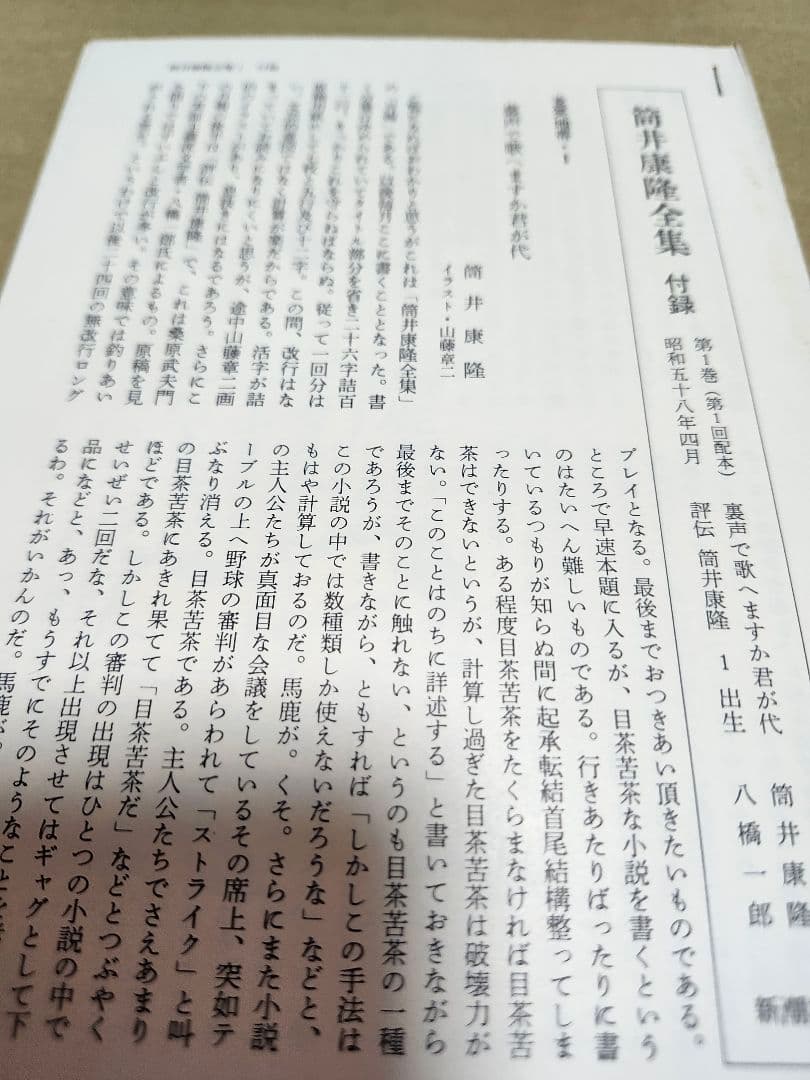 筒井康隆全集 付録
第1巻(第1回配本)
昭和五十八年四月
裏声で歌へますか君が代 筒井康隆
評伝 筒井康隆 1 出生 八橋一郎
新潮
裏声で歌へますか君が代
筒井康隆
イラスト・山藤章二
これは「筒井康隆全集」
ここに書くこととなった。書
タイトル部分を省き二十六字詰百
ならぬ。従って一回分は
この間、改行はな
からである。活字が詰
と思うが、途中山藤章二画
になるであろう。さらにこ
で、これは桑原武夫門
八橋一郎氏によるもの。原稿を見
改行が多い。その意味では釣りあい
以後二十四回の無改行ロング
プレイとなる。最後までおつきあい頂きたいものである。
ところで早速本題に入るが、目茶苦茶な小説を書くという
のはたいへん難しいものである。行きあたりばったりに書
いているつもりが知らぬ間に起承転結首尾結構整ってしま
ったりする。ある程度目茶苦茶をたくらまなければ目茶苦
茶はできないというが、計算し過ぎた目茶苦茶は破壊力が
ない。「このことはのちに詳述する」と書いておきながら
最後までそのことに触れない、というのも目茶苦茶の一種
であろうが、書きながら、ともすれば「しかしこの手法は
この小説の中では数種類しか使えないだろうな」などと、
もはや計算しておるのだ。馬鹿が。くそ。さらにまた小説
の主人公たちが真面目な会議をしているその席上、突如テ
ーブルの上へ野球の審判があらわれて「ストライク」と叫
ぶなり消える。目茶苦茶である。主人公たちでさえあまり
の目茶苦茶にあきれ果てて「目茶苦茶だ」などとつぶやく
ほどである。しかしこの審判の出現はひとつの小説の中で
せいぜい二回だな、それ以上出現させてはギャグとして下
品になどと、あっ、もうすでにそのようなことを
るわ。それがいかんのだ。馬鹿が。